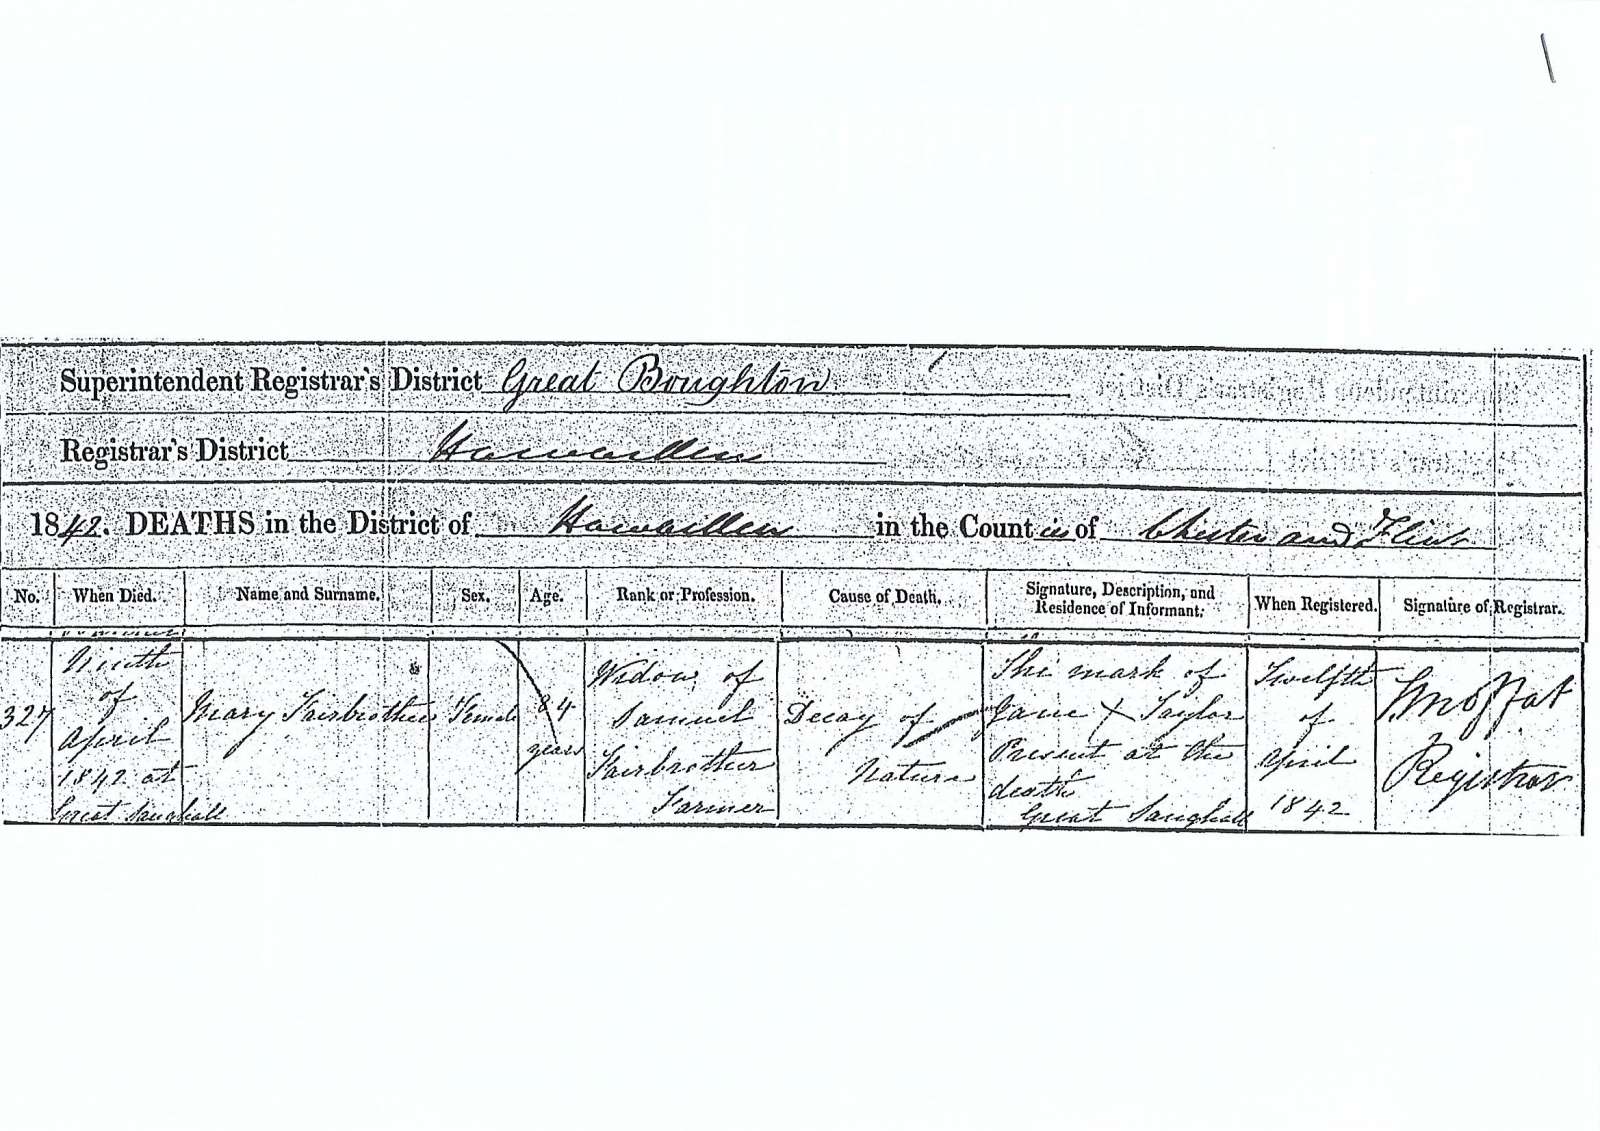 Superintendent Registrar's District Great Boughton
Registrar's District Hawarden
1842. DEATHS in the District of Hawarden in the Counties of Chester and Flint
No. When Died. Name and Surname. Sex. Age. Rank or Profession. Cause of Death. Signature, Description, and Residence of Informant. When Registered. Signature of Registrar.
327
Ninth
of
April
1842 at
Great Saughall
Mary Fairbrother
Female
84
years
Widow of
Samuel
Fairbrother
Farmer
Decay of
Nature
The mark of
Jane X Taylor
Present at the
death
Great Saughall
Twelfth
of
April
1842
Moffat
Registrar